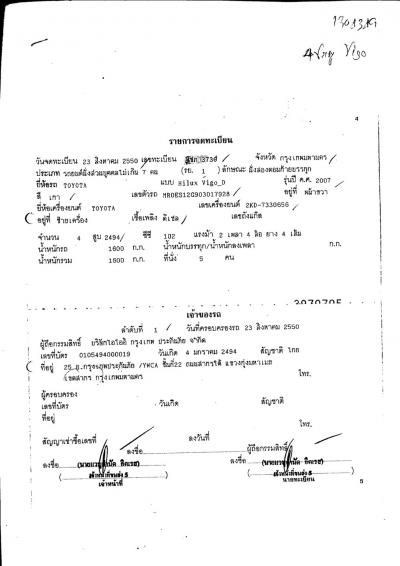 4ประตู Vigo
4
รายการจดทะเบียน
วันจดทะเบียน 23 สิงหาคม 2550 เลขทะเบียน จังหวัด กรุงเทพมหานคร
ประเภท รถยนต์นั่งส่วนบุคคลไม่เกิน 7 คน (รย. 1) ลักษณะ นั่งสองตอนท้ายบรรทุก
ยี่ห้อรถ TOYOTA แบบ Hilux Vigo_D รุ่นปี ค.ศ. 2007
สี เทา เลขตัวรถ MR0ES12G903017928 อยู่ที่ หน้าขวา
ยี่ห้อเครื่องยนต์ TOYOTA เลขเครื่องยนต์ 2KD-7330656
อยู่ที่ ซ้ายเครื่อง เชื้อเพลิง ดีเซล เลขถังแก๊ส
จำนวน 4 สูบ 2494 ซีซี 102 แรงม้า 2 เพลา 4 ล้อ ยาง 4 เส้น
น้ำหนักรถ 1600 ก.ก. น้ำหนักบรรทุก/น้ำหนักลงเพลา ก.ก.
น้ำหนักรวม 1800 ก.ก. ที่นั่ง 5 คน
เจ้าของรถ
ลำดับที่ 1 วันที่ครอบครองรถ 23 สิงหาคม 2550
ผู้ถือกรรมสิทธิ์ บริษัทไอโออิ กรุงเทพ ประกันภัย จำกัด
เลขที่บัตร 0105494000019 วันเกิด 4 มกราคม 2494 สัญชาติ ไทย
ที่อยู่ 25 อ.กรุงเทพประกันภัย /YWCA ชั้นที่22 ถนนสาทรใต้ แขวงทุ่งมหาเมฆ
เขตสาทร กรุงเทพมหานคร โทร.
ผู้ครอบครอง
เลขที่บัตร วันเกิด สัญชาติ
ที่อยู่
โทร.
สัญญาเช่าซื้อเลขที่ ลงวันที่
ลงชื่อ ผู้ถือกรรมสิทธิ์
ลงชื่อ ลงชื่อ
เจ้าหน้าที่ขนส่ง 5 เจ้าหน้าที่ขนส่ง 5
เจ้าหน้าที่ นายทะเบียน
5